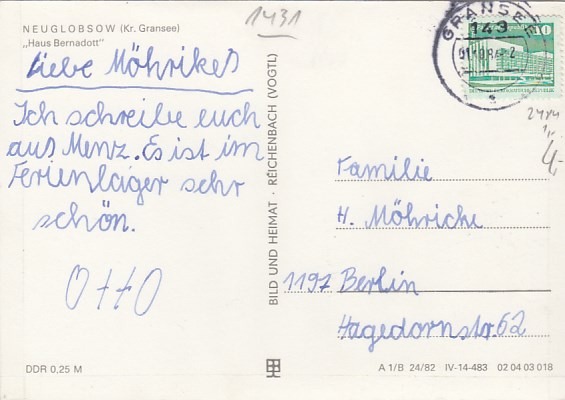 NEUGLOBSOW (Kr. Gransee)
„Haus Bernadott"
Liebe Möhrikes
Ich schreibe euch
aus Menz. Es ist im
Ferienlager sehr
schön.
Otto
DDR 0,25 M
1431
BILD UND HEIMAT · REICHENBACH (VOGTL)
GRANSEE
143
10
2484
4,-
Familie
H. Möhricke
1197 Berlin
Hagedornstr. 62
A 1/B 24/82 IV-14-483 02 04 03 018